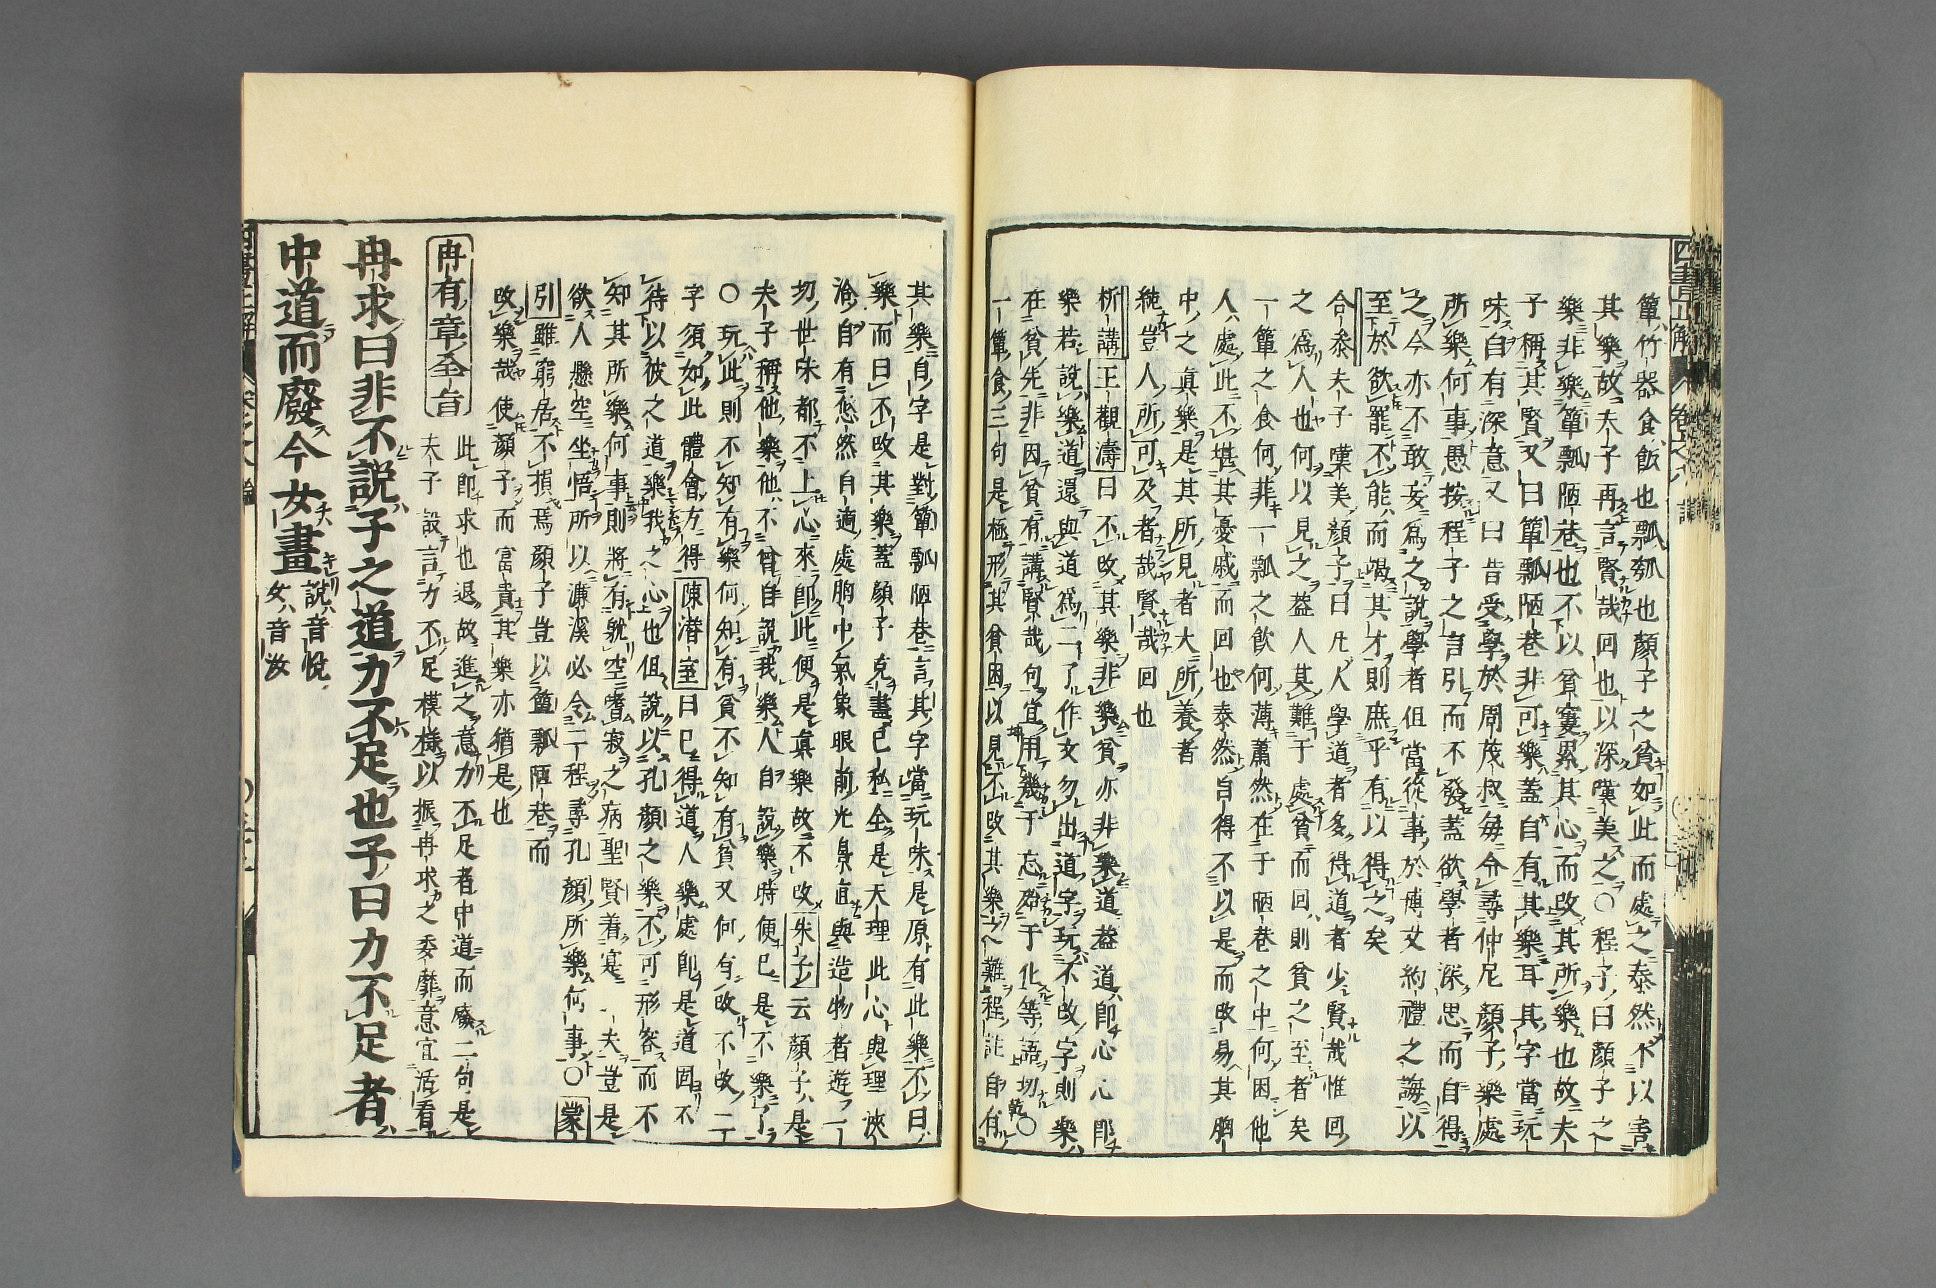 簞竹器食飯也瓢瓠也顏子之貧如此而處之泰然不以害
其樂故夫子再言賢哉回也以深嘆美之○程子曰顏子之
樂非樂簞瓢陋巷也不以貧窶累其心而改其所樂也故夫
子稱其賢又曰簞瓢陋巷非可樂蓋自有其樂耳其字當玩
味自有深意又曰昔受學於周茂叔每令尋仲尼顏子樂處
所樂何事愚按程子之言引而不發蓋欲學者深思而自得
之今亦不敢妄爲之說學者但當從事於博文約禮之誨以
至於欲罷不能而竭其才則庶乎有以得之矣
合叅夫子嘆美顏子曰凡人學道者多得道者少賢哉惟回
之爲人也何以見之蓋人其難于處貧而回則貧之至者矣
一簞之食何菲一瓢之飲何薄蕭然在于陋巷之中何困他
人處此不堪其憂戚而回也泰然旨得不以是而改易其胸
中之眞樂是其所見者大所養者
純豈人所可及者哉賢哉回也
析講王觀濤曰不改其樂非樂貧亦非樂道蓋道即心心即
樂若說樂道還與道爲二了作文勿出道字玩不改字則樂
在貧先非因貧有講賢哉句宜用幾于忘殆于化等語切○
一簞食三句是極形其貧困以見不改其樂之難程註自有
其樂自字是對簞瓢陋巷言其字當玩味是原有此樂不曰
樂而曰不改其樂蓋顏子克盡已私全是天理此心與理浹
洽自有悠然自適處胸中氣象眼前光景直與造物者遊一
切世味都不上心來即此便是眞樂故不改朱子云顏子是
夫子稱他樂他不曾自說我樂人自說樂時便已是不樂了
○玩此則不知有樂何知有貧不知有貧又何有改不改二
字須如此體會方得陳潛室曰巳得道人樂處即是道固不
待以彼之道樂我之心也但說以孔顏之樂不可形容而不
知其所樂何事則將有躭空嗜寂之病聖賢着寔工夫豈是
欲人懸空坐悟所以濂溪必令二程尋孔顏所樂何事○蒙
引雖窮居不損焉顏子豈以簞瓢陋巷而
改樂哉使顏子而富貴其樂亦猶是也
冉有章全旨
此即求也退故進之意力不足者中道而廢二句是
夫子設言力不足模様以振冉求之委靡意宜活看
冉求曰非不說子之道力不足也子曰力不足者
中道而廢今女畫
說音悅
女音汝